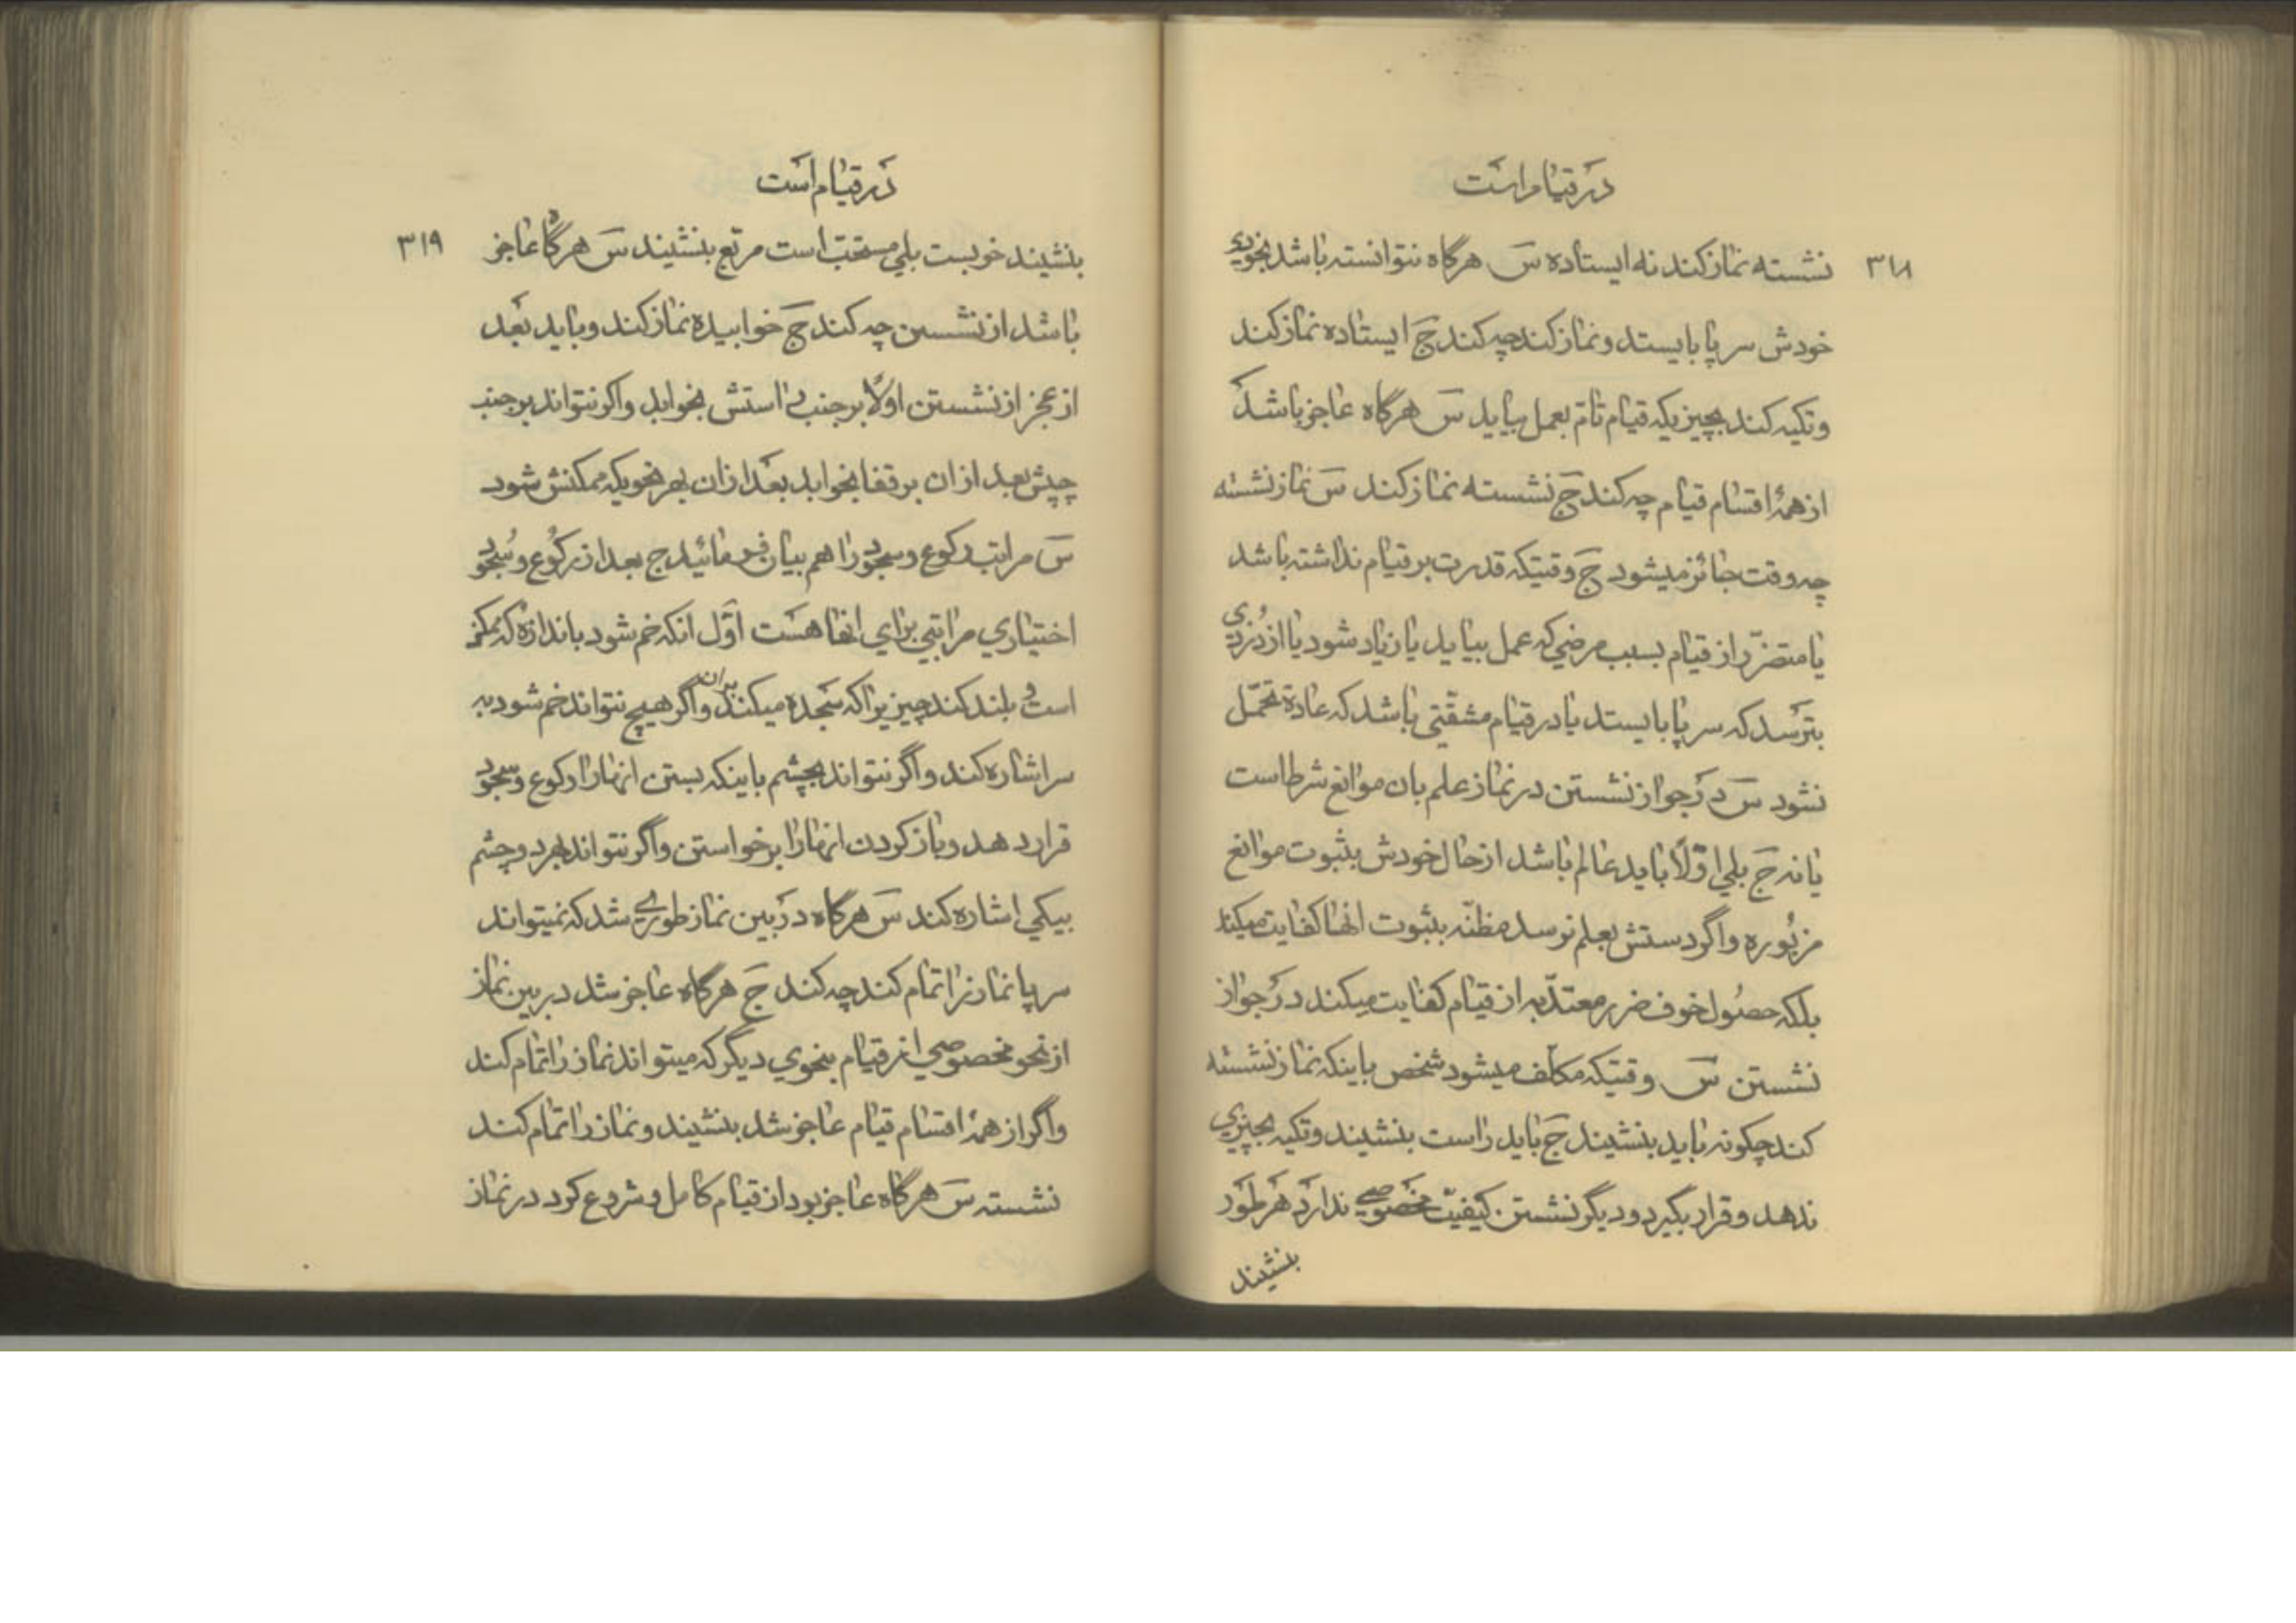 در قیام است
۳۱۸
نشسته نماز کند نه ایستاده س هرگاه نتوانسته باشد بخودی
خودش سرپا بایستد و نماز کند چه کند ج ایستاده نماز کند
و تکیه کند بچیزیکه قیام تام بعمل بیاید س هرگاه عاجز باشد
از همهٔ اقسام قیام چه کند ج نشسته نماز کند س نماز نشسته
چه وقت جائز میشود ج وقتیکه قدرت بر قیام نداشته باشد
یا متضرّر از قیام بسبب مرضی که عمل بیاید یا زیاد شود یا از دزدی
بترسد که سرپا بایستد یا در قیام مشقّتی باشد که عادة تحمّل
نشود س در جواز نشستن در نماز علم بان موانع شرط است
یا نه ج بلی اوّلاً باید عالم باشد از حال خودش بثبوت موانع
مزبوره و اگر دستش بعلم نرسد مظنّه بثبوت انها کفایت میکند
بلکه حصول خوف ضرر معتدّ به از قیام کفایت میکند در جواز
نشستن س وقتیکه مکلف میشود شخص باینکه نماز نشسته
کند چکونه باید بنشیند ج باید راست بنشیند و تکیه بچیزی
ندهد و قرار بگیرد و دیگر نشستن کیفیّت مخصوصی ندارد هر طور
بنشیند
در قیام است
۳۱۹
بنشیند خوبست بلی مستحبّ است مربّع بنشیند س هرگاه عاجز
باشد از نشستن چه کند ج خوابیده نماز کند و باید بعد
از عجز از نشستن اولاً بر جنب راستش بخوابد و اکر نتواند بر جنب
چپش بعد از ان بر قفا بخوابد بعد از ان بهر نحویکه ممکنش شود
س مراتب رکوع و سجود را هم بیان فرمائید ج بعد از رکوع و سجود
اختیاری مراتبی برای انها هست اوّل انکه خم شود باندازه که ممکن
است و بلند کند چیزیرا که سجده میکند بران و اگر هیچ نتواند خم شود به
سر اشاره کند و اگر نتواند بچشم باینکه بستن انها را رکوع و سجود
قرار دهد و باز کردن انها را برخواستن و اگر نتواند بهر دو چشم
بیکی اشاره کند س هرگاه در بین نماز طوری شد که نمیتواند
سرپا نماز را تمام کند چه کند ج هرگاه عاجز شد در بین نماز
از نحو مخصوصی از قیام بنحوی دیگر که میتواند نماز را تمام کند
و اگر از همهٔ اقسام قیام عاجز شد بنشیند و نماز را تمام کند
نشسته س هرگاه عاجز بود از قیام کامل و شروع کرد در نماز